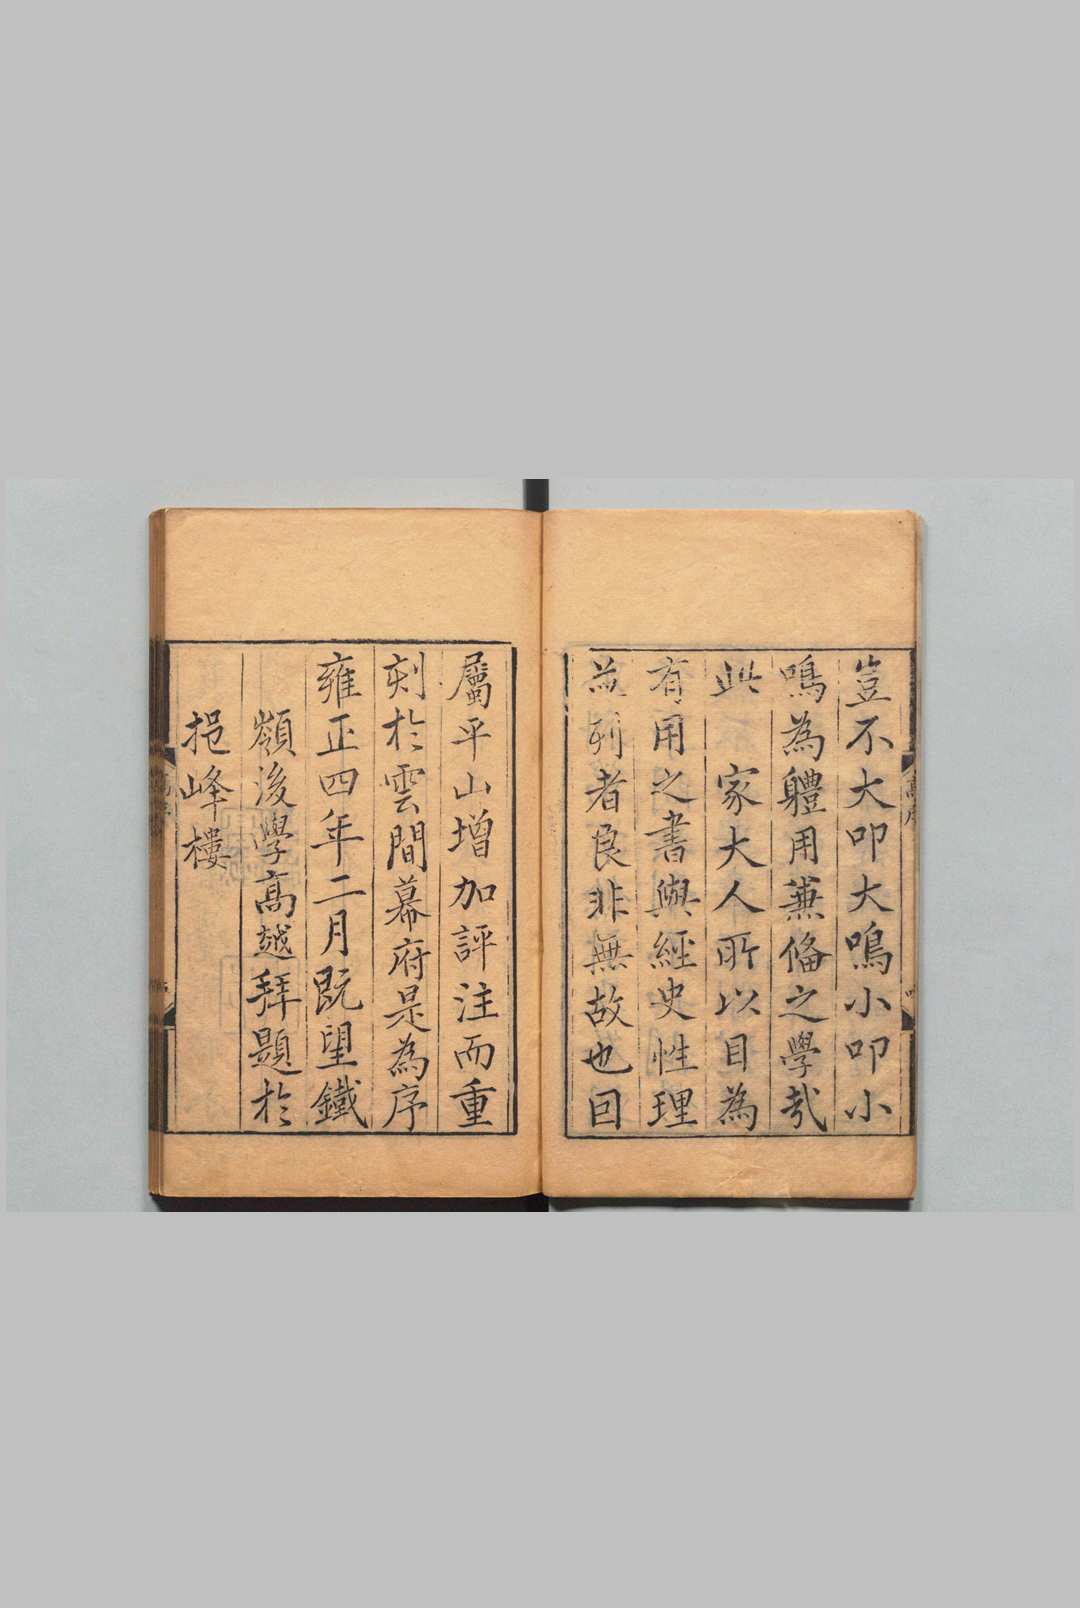 豈不大叩大鳴小叩小
鳴為體用兼俻之學㢤
此 家大人所以目為
有用之書與經史性理
並列者良非無故也回
屬平山增加評注而重
刻於雲間幕府是為序
雍正四年二月既望鐵
嶺後學高越拜題於
挹峰樓
高序